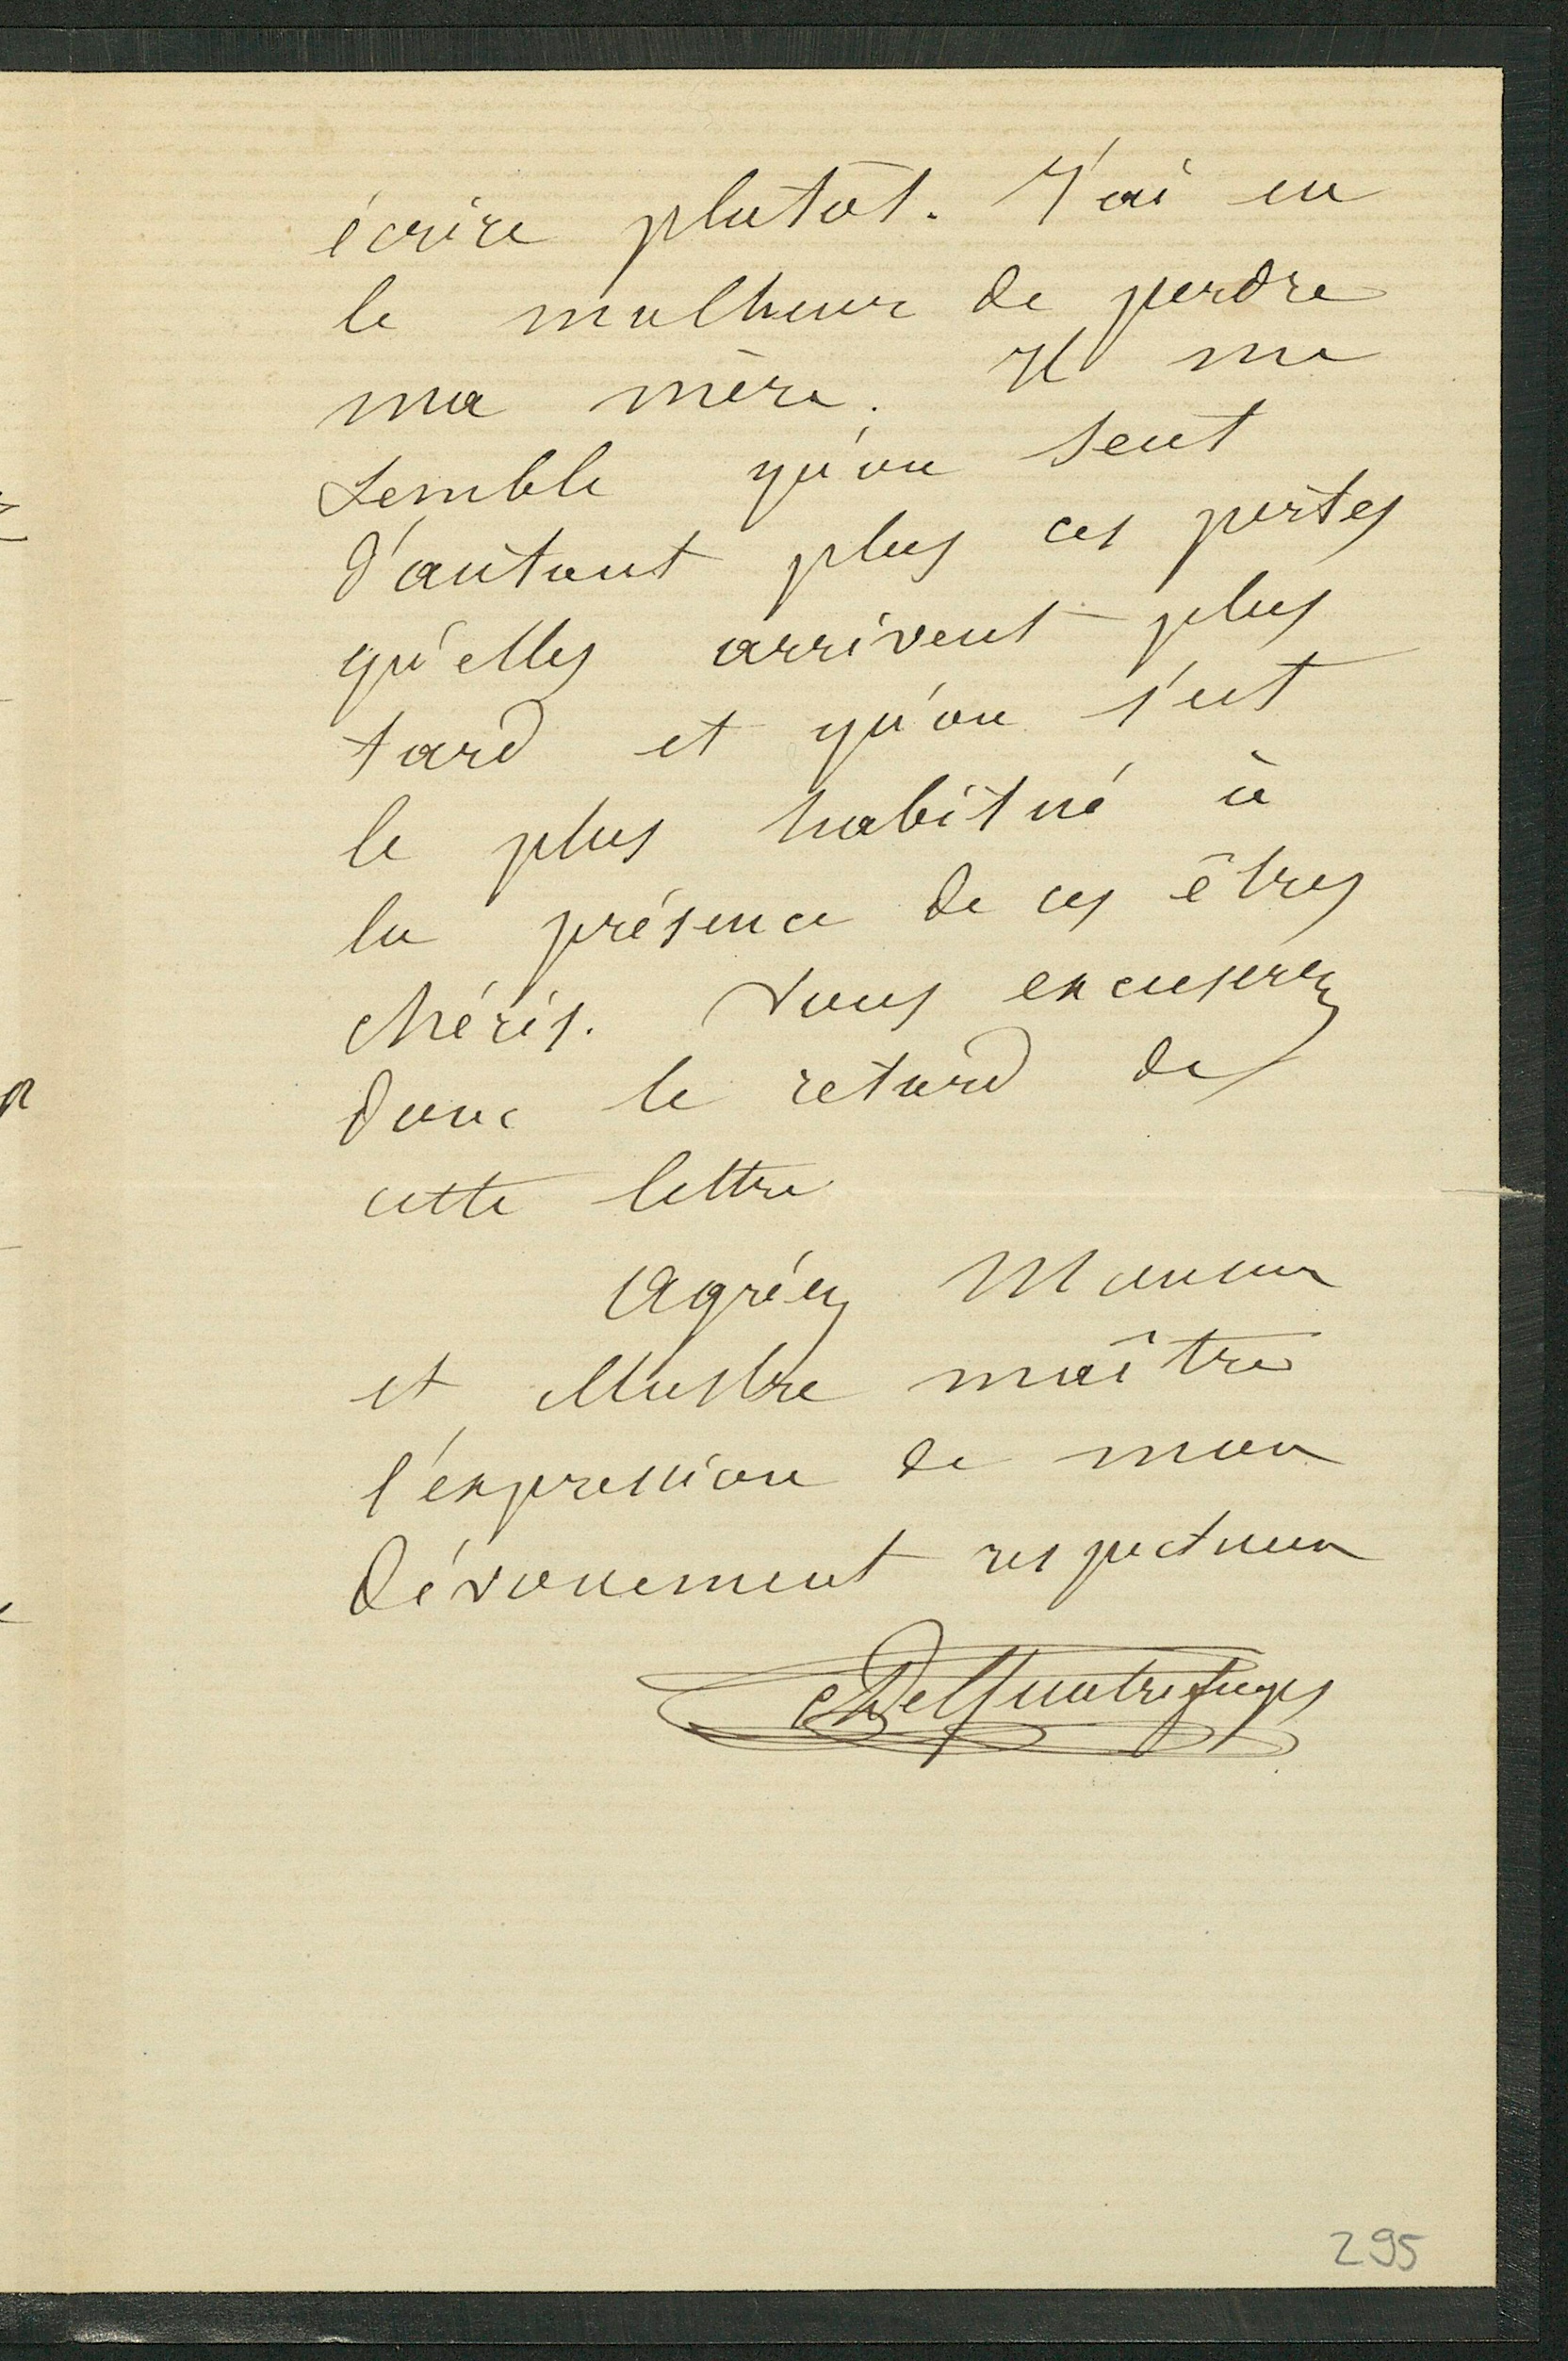 écrire plutôt. J'ai eu
le malheur de perdre
ma mère. Il me
semble qu'on sent
d'autant plus ces pertes
qu'elles arrivent plus
tard et qu'on s'est
le plus habitué à
la présence de ces êtres
chéris. Vous excuserez
donc le retard de
cette lettre
Agréez Monsieur
et illustre maître
l'expression de mon
dévouement respectueux
295